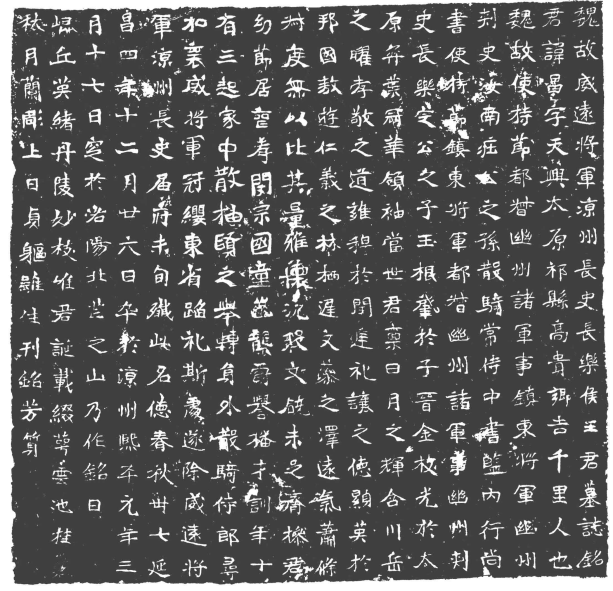 魏故威遠將軍涼州長史長樂侯王君墓誌銘
君諱昌字天興太原祁縣高貴鄉吉千里人也
魏故使持節都督幽州諸軍事鎮東將軍幽州
刺史汝南莊公之孫散騎常侍中書監內行尚
書使持節鎮東將軍都督幽州諸軍事幽州刺
史長樂定公之子玉根肇於子晉金枝光於太
原弈葉冠華領袖當世君稟日月之輝含川岳
之曜孝敬之道誰稱於閨庭禮讓之德顯英於
邦國敖遊仁義之林栖遲文藻之澤遠氣蕭條
淵度無以比其量雅懷沉毅文饒未足濟機君
幼節居喪孝聞宗國童齒襲爵譽播才訓年十
有三起家中散抽頤之舉轉身外散騎侍郎尋
加襄威將軍冠纓東省蹈礼斯處遂除威遠將
軍涼州長史屆府未旬纖此名德春秋卅七延
昌四年十二月廿六日卒於涼州熙平元年三
月十七日窆於洛陽北芒之山乃作銘曰
崐丘英緒丹陵妙枝唯君誕載綴萼雲池桂
秋月蘭彫上日貞軀雖往刊銘芳